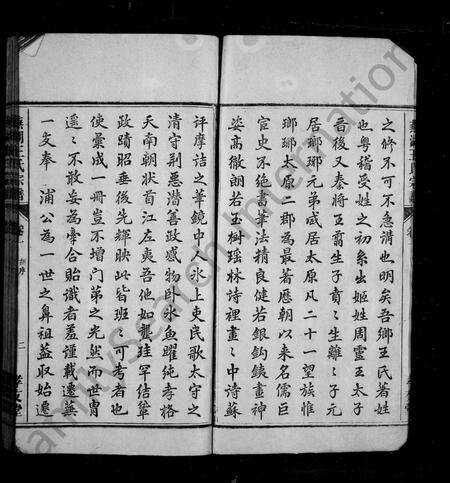 之修不可不急講也明矣吾鄉王氏著姓
也粵稽受姓之初系出姬姓周靈王太子
晉後又秦將王翦生子賁賁生離離子元
居瑯琊元弟威居太原凡二十一望族惟
瑯琊太原二郡為最著歷朝以來名儒巨
宦史不絕書筆法精良健若銀鈎錶畫神
姿高徹朗若玉樹瑤林詩裡畫畫中詩蘇
評摩詰之華鏡中人氷上東民歌太守之
清守荆惡濳善政感物卧氷魚躍純孝格
天南朝狀首江左夷吾他如龔珪罕結箰
政蹟昭垂後先輝映此皆班班可考者也
使彙成一冊豈不增門第之光然而世胄
遥遥不敢妄為牽合貽譏者羞謹載遷蕪
一支奉 浦公為一世之鼻祖蓋収始遷
宗譜
卷一
二
FamilySearch International